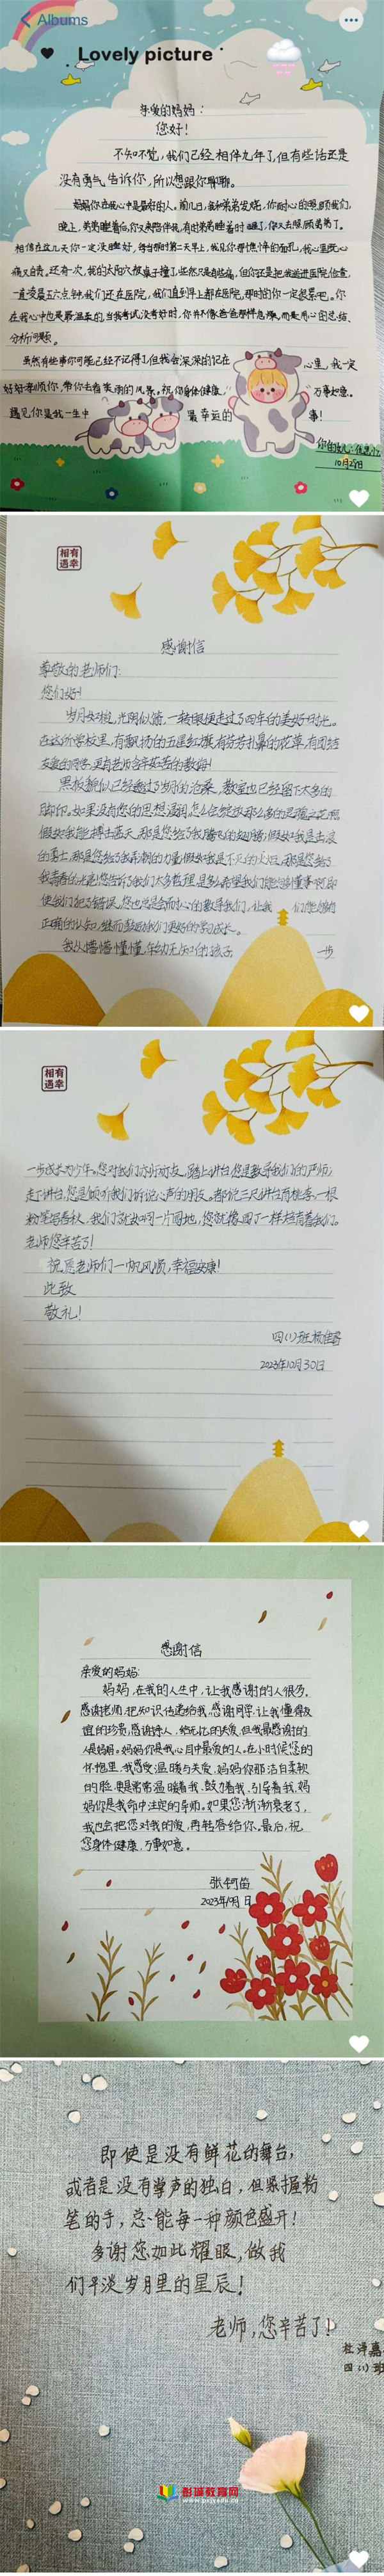 Albums
Lovely picture
亲爱的妈妈：
您好！
不知不觉，我们已经相伴九年了，但有些话还是
没有勇气告诉你，所以想跟你聊聊。
妈妈你在我心中是最好的人。前几日，我和弟弟发烧，你耐心的照顾我们，
晚上，弟弟睡着后，你又来陪伴我，有时弟弟睡着时
相信在这几天你一定没睡好，每当那时第二天早上，我见你那憔悴的面孔，我心里既心
疼又自责。还有一次，我的太阳穴被桌子撞了，
一直凌晨五六点钟，我们还在医院，我们直到早上都在医院，那时的你一定很累吧。你
在我心中也是最温柔的，当我考试没考好时，你并不像爸爸那样急躁，而是用心的总结、
分析问题。
虽然有些事你可能已经不记得了，但我会深深的记在 心里，我一定
好好孝顺你，带你去看美丽的风景，祝你身体健康， 万事如意。
遇见你是我一生中 最幸运的 事！
10月29日
相有
遇幸
感谢信
尊敬的老师们：
您们好！
岁月如梭，光阴似箭，一转眼便走过了四年的美好时光。
在这所学校里，有飘扬的五星红旗，有芬芳扑鼻的花草，有团结
友爱的同学，更有老师含辛茹苦的教诲！
黑板貌似已经透过了岁月的沧桑，教室也已经留下太多的
脚印。如果没有您的思想浸润，怎么会绽放那么多的灵魂之花？
假如我能搏击蓝天，那是您给了我腾飞的翅膀；假如我是击浪
的勇士，那是您给了我弄潮的力量；假如我是不灭的火炬，那是您给了
我青春的光亮！您告诉了我们太多哲理，是多么希望我们能够懂事啊！即
使我们犯了错误，您也总会耐心的教导我们，让我 们能够有
正确的认知，继而鼓励我们更好的学习成长。
我从懵懵懂懂、年幼无知的孩子 一步
相有
遇幸
一步成长为少年。您对我们亦师亦友，踏上讲台，您是教导我们的严师；
走下讲台，您是倾听我们诉说心声的朋友。都说三尺讲台育桃李，一根
粉笔写春秋，我们就如同一片园地，您就像园丁一样培育着我们。
老师您辛苦了！
祝愿老师们一帆风顺，幸福安康！
此致
敬礼！
2023年10月30日
感谢信
亲爱的妈妈：
妈妈，在我的人生中，让我感谢的人很多。
感谢老师，把知识传递给我，感谢同学，让我懂得友
谊的珍贵，感谢亲人，给无比的关爱，但我最感谢的
人是妈妈。妈妈你是我心目中最爱的人。在小时候您的
怀抱里，我感受温暖与关爱。妈妈你那洁白柔软
的脸，更是常常温暖着我、鼓力着我、引导着我，妈
妈你是我命中注定的导师。如果您渐渐衰老了，
我也会把您对我的爱，再转答给你。最后，祝
您身体健康，万事如意。
即使是没有鲜花的舞台，
或者是没有掌声的独白，但紧握粉
笔的手，总能每一种颜色盛开！
多谢您如此耀眼，做我
们平淡岁月里的星辰！
老师，您辛苦了！
杜泽嘉
四(1)班
彭课教育网